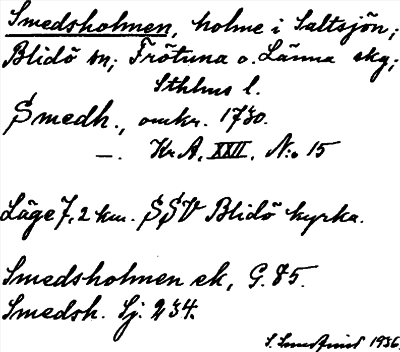 Smedsholmen, holme i Saltsjön;
Blidö sn; Frötuna o. Länna skg;
Sthlms l.
Smedh., omkr. 1730.
—. Kr. A. XXII. N:o 15
Läge 7,2 km. SSV Blidö kyrka.
Smedsholmen ek, G. 85.
Smedsh. Sj. 234.
S. 1936.